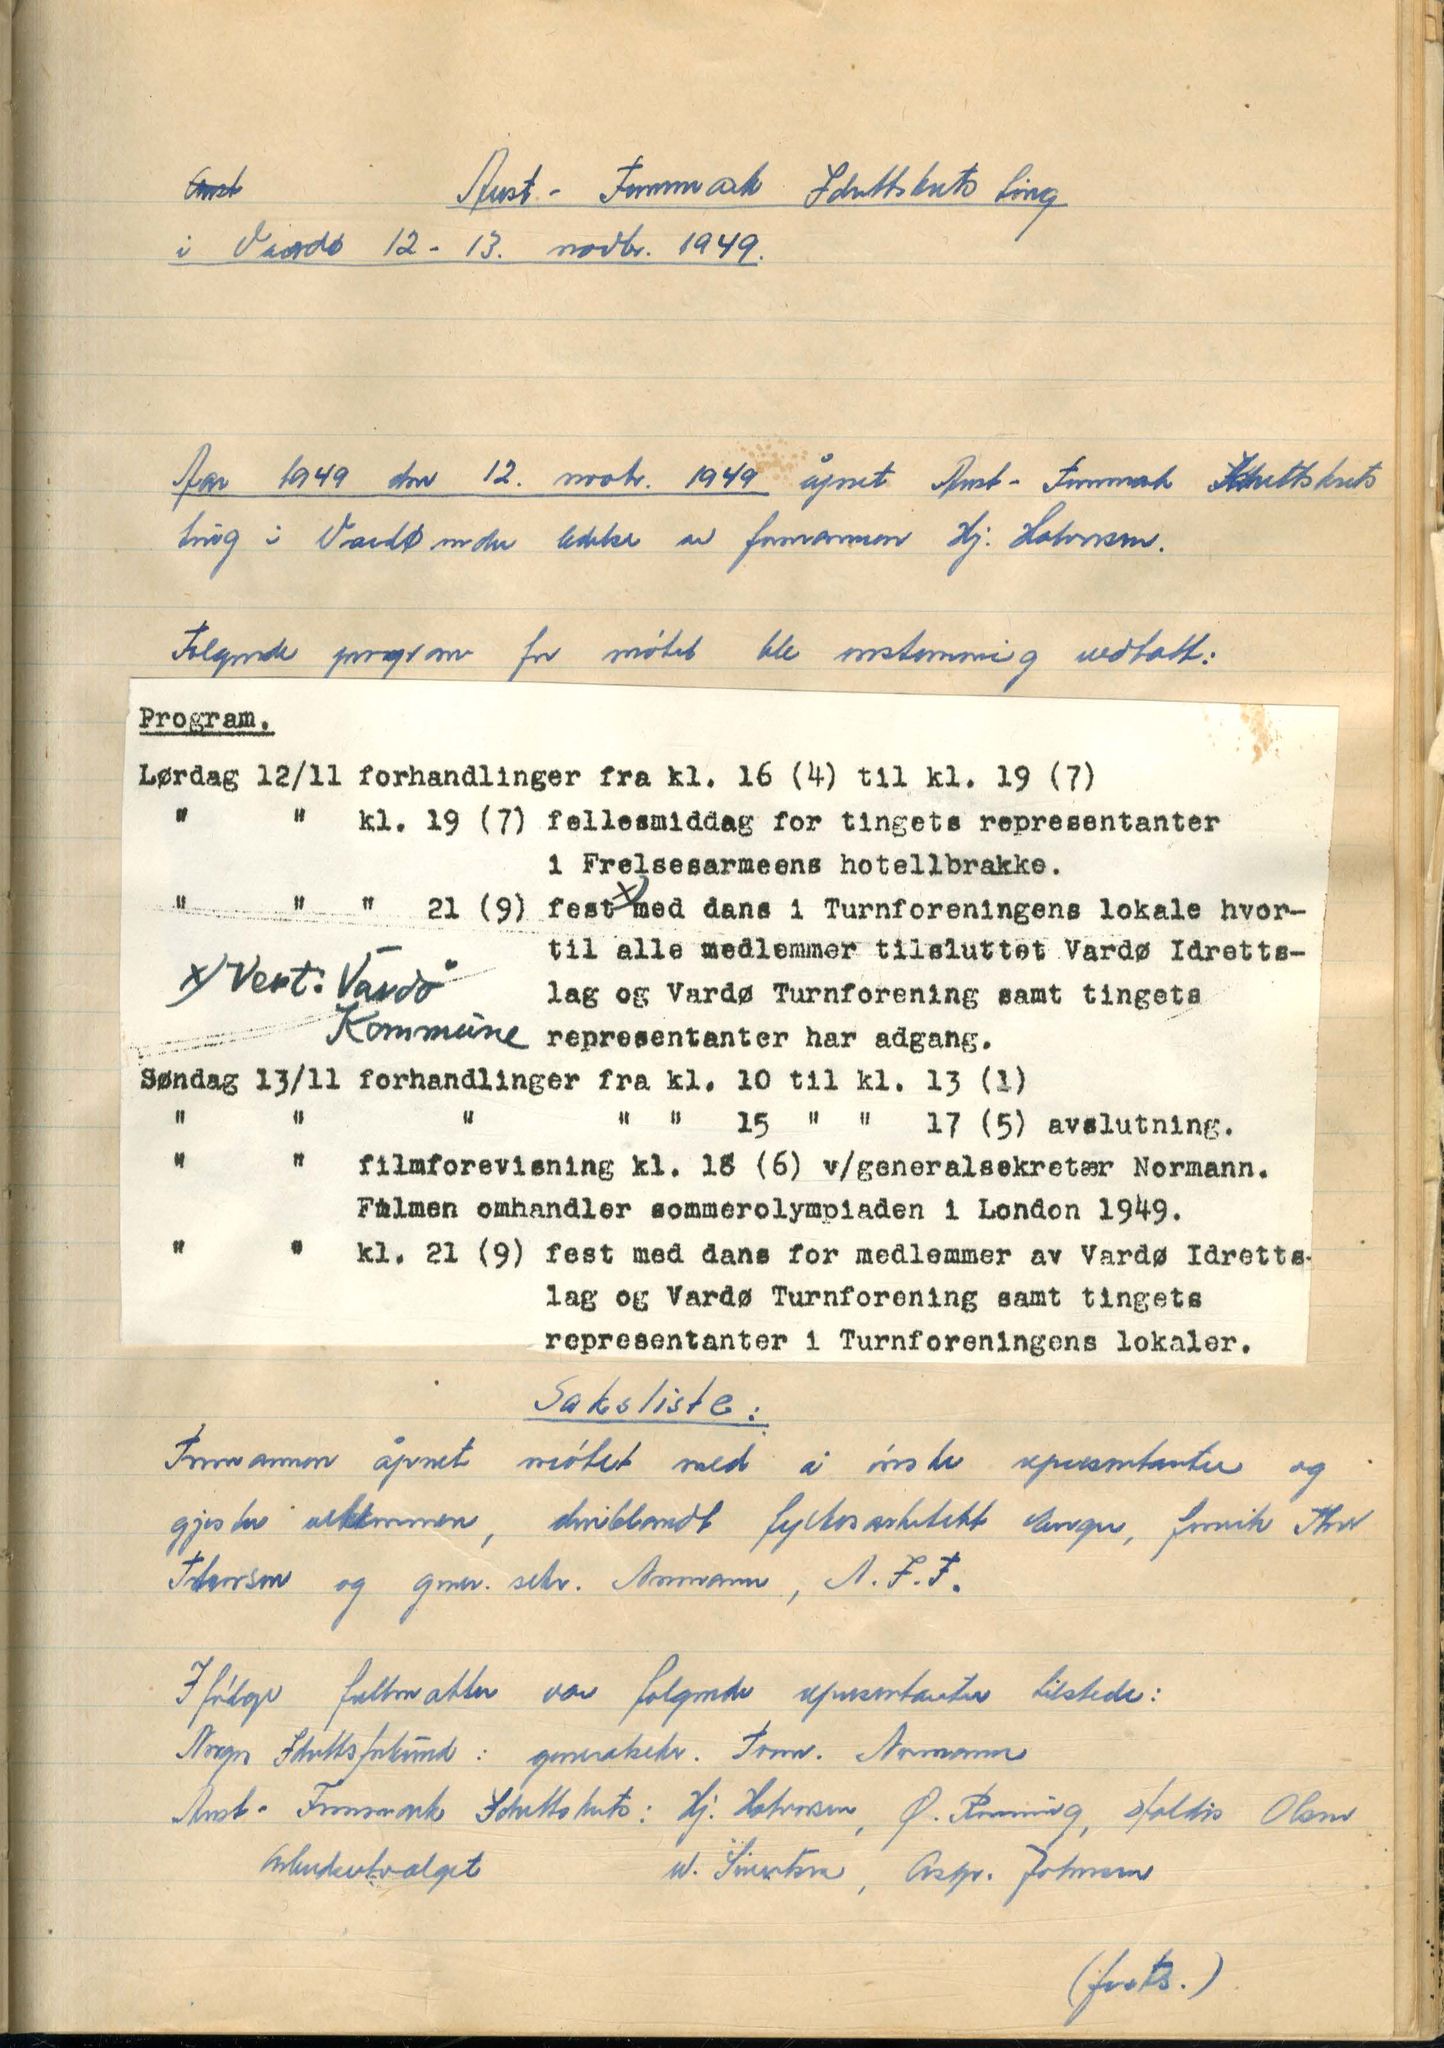 Aust - Finnmark Idrettskrets ting
i Vardø 12 - 13. novbr. 1949.
Aar 1949 den 12. novbr. 1949 åpnet Aust - Finnmark Idrettskrets
ting i Vardø under ledelse av formannen Hj. Halvorsen.
Følgende program for møtet ble enstemmig vedtatt:
Program.
Lørdag 12/11 forhandlinger fra kl. 16 (4) til kl. 19 (7)
" " kl. 19 (7) fellesmiddag for tingets representanter
i Frelsesarmeens hotellbrakke.
" " " 21 (9) fest x) med dans i Turnforeningens lokale hvor-
til alle medlemmer tilsluttet Vardø Idretts-
x) Vert: Vardø
lag og Vardø Turnforening samt tingets
Kommune
representanter har adgang.
Søndag 13/11 forhandlinger fra kl. 10 til kl. 13 (1)
" " " " " 15 " " 17 (5) avslutning.
" " filmforevisning kl. 18 (6) v/generalsekretær Normann.
Filmen omhandler sommerolympiaden i London 1949.
" " kl. 21 (9) fest med dans for medlemmer av Vardø Idretts-
lag og Vardø Turnforening samt tingets
representanter i Turnforeningens lokaler.
Saksliste:
Formannen åpnet møtet med å ønske representanter og
gjester velkommen, deriblandt fylkesarkitekt, Thor
og gener. sekr. Normann, N. I. F.
Ifølge fullmakter var følgende representanter tilstede:
Norges Idrettsforbund: generalsekr. Form. Normann
Aust - Finnmark Idrettskrets: Hj. Halvorsen, Ø. Rønning, Haldis Olsen
Arbeidsutvalget W. Sivertsen, Asbj. Johnsen
(forts.)